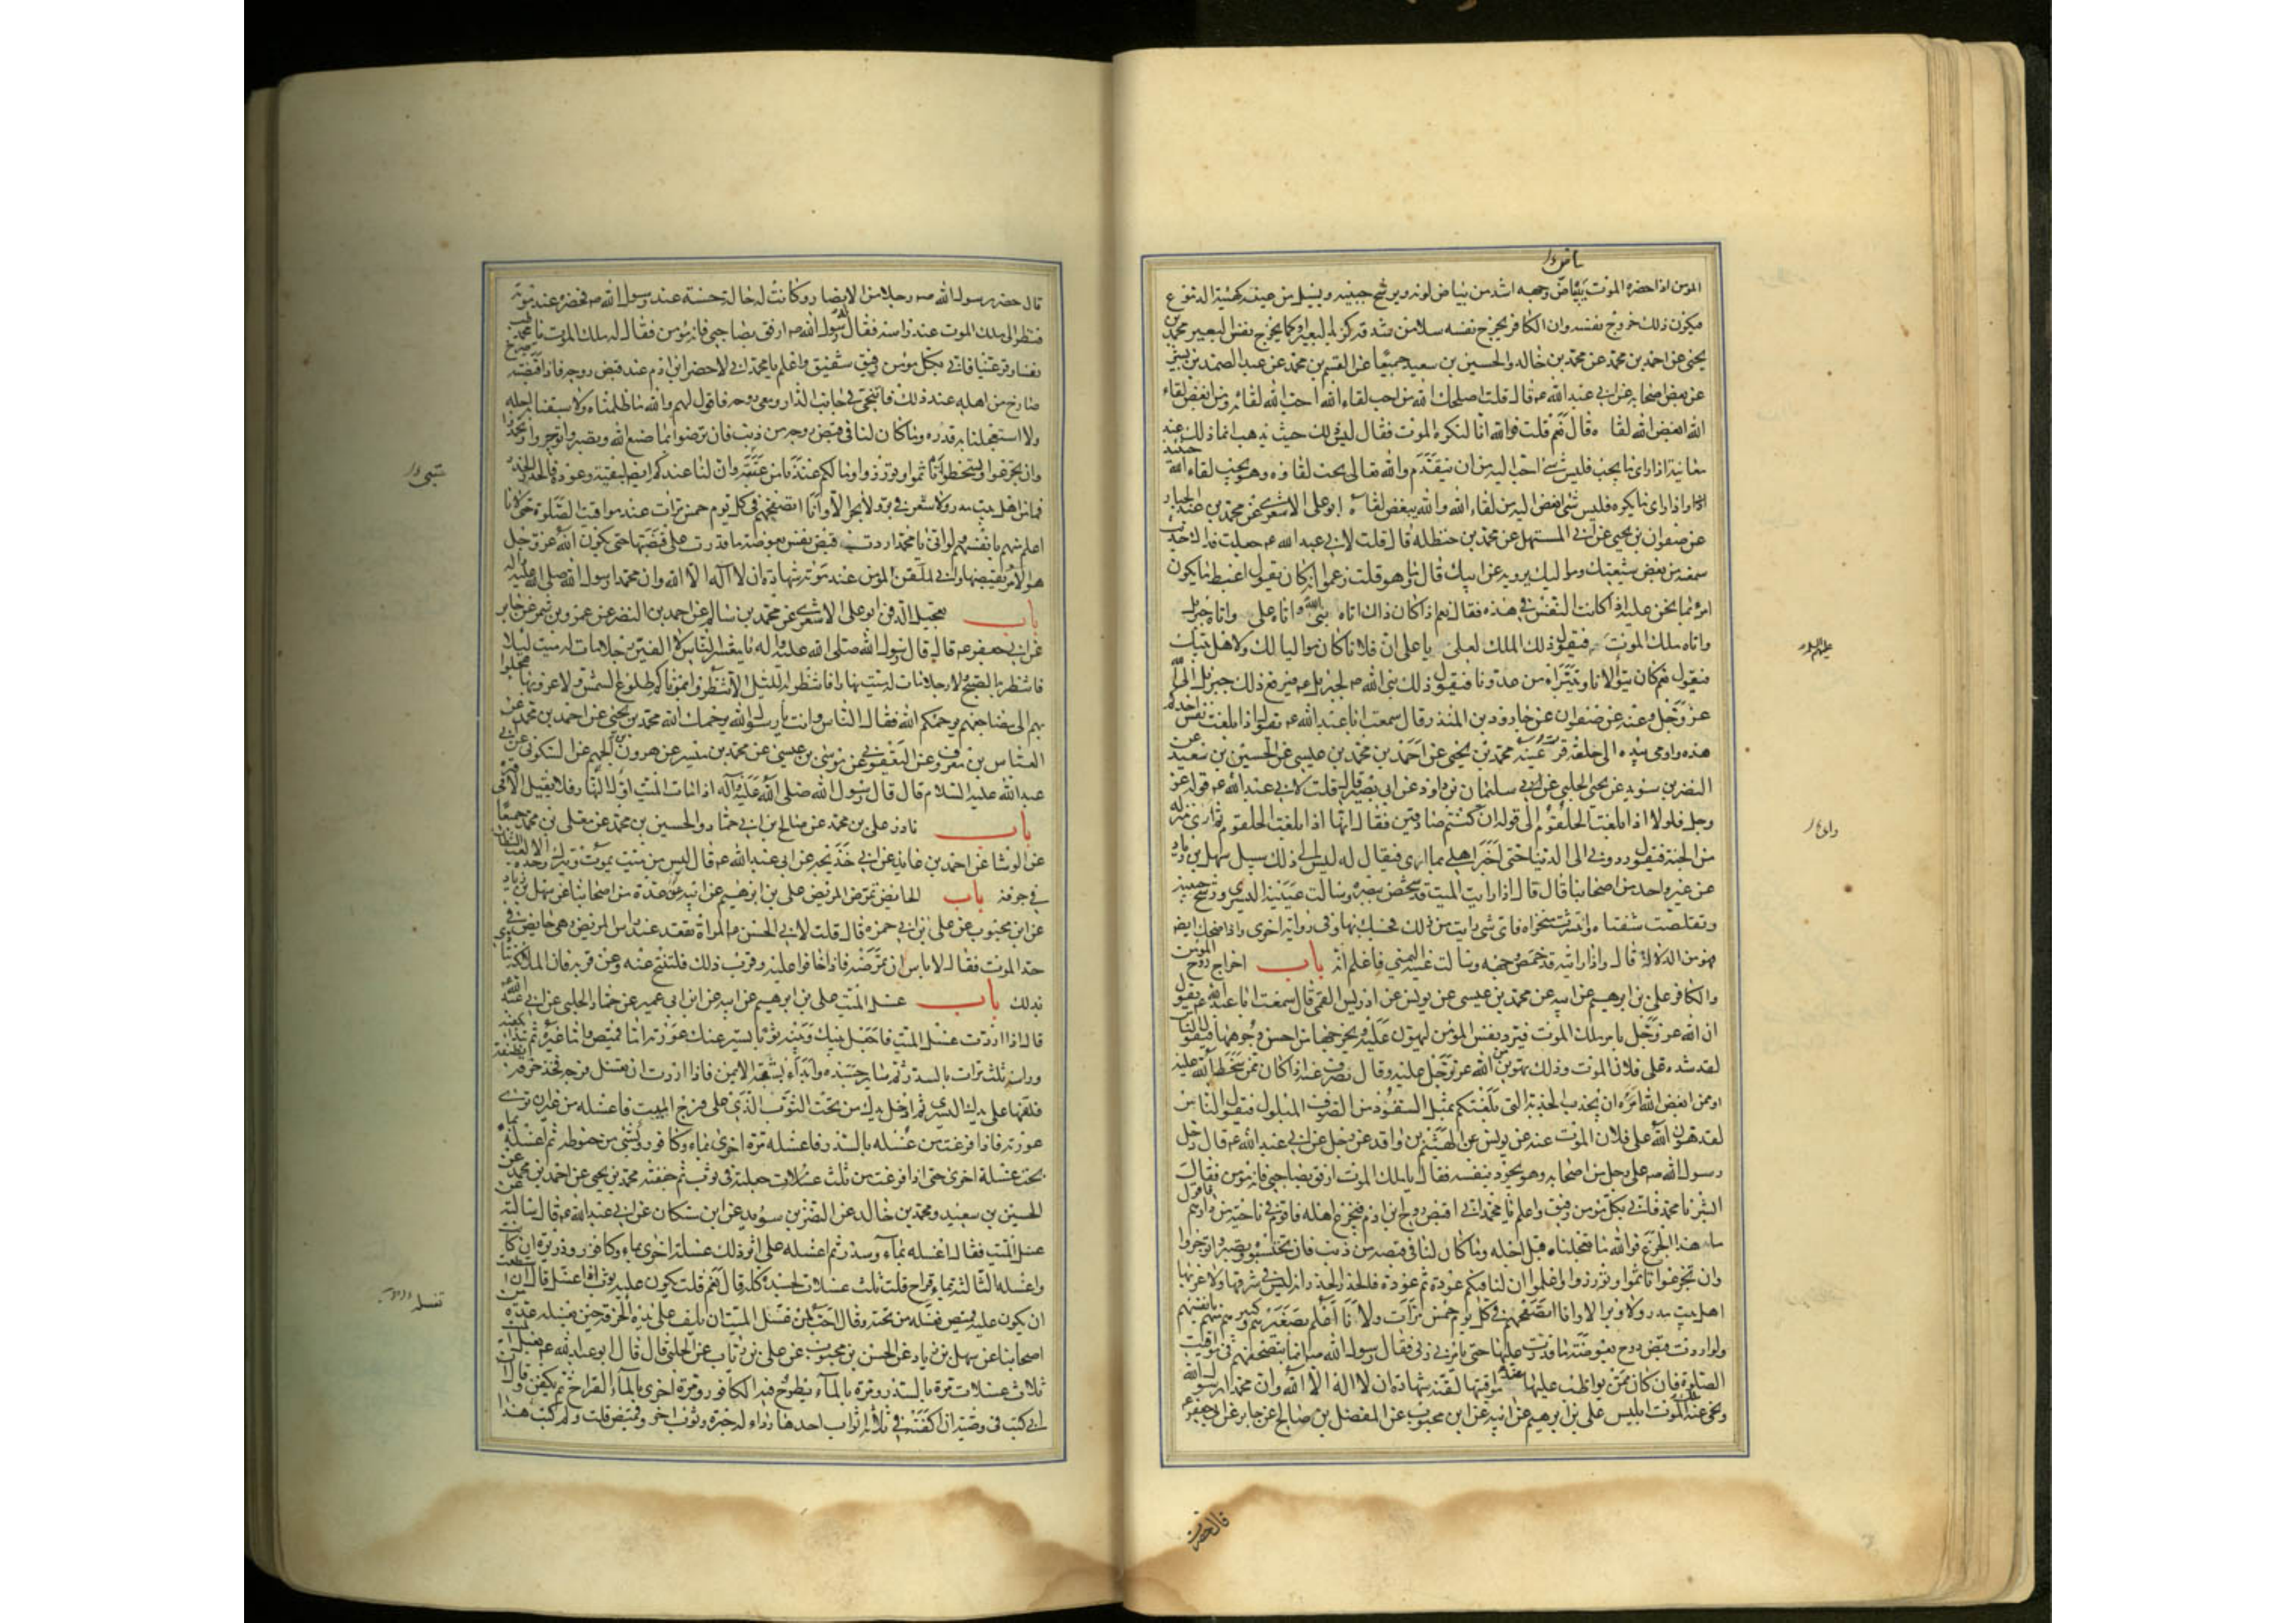 المؤمن اذا حضره الموت يبياض وجهه اشد من بياض لونه ويرشح جبينه ويسيل من عينيه كهيئة الدموع
فيكون ذلك خروج نفسه وان الكافر يخرج نفسه سلا من شدقه كزبد البعير او كما يخرج نفس البعير محمد بن
يحيى عن احمد بن محمد عن محمد بن خالد والحسين بن سعيد جميعا عن القسم بن محمد عن عبد الصمد بن بشير
عن بعض اصحابه عن ابي عبد الله ع قال قلت اصلحك الله من احب لقاء الله احب الله لقائه ومن ابغض لقاء
الله ابغض الله لقاه قال نعم قلت فوالله انا لنكره الموت فقال ليس ذلك حيث تذهب انما ذلك عند
معاينة اذا راى ما يحب فليس شئ احب اليه من ان يتقدم والله تعالى يحب لقاؤه وهو يحب لقاء الله
واذا راى ما يكره فليس شئ ابغض اليه من لقاء الله والله يبغض لقاه ابو على الاشعرى عن محمد بن عبد الجبار
عن صفوان بن يحيى عن ابي المستهل عن محمد بن حنظلة قال قلت لابي عبد الله ع جعلت فداك حديث
سمعته من بعض شيعتك ومواليك يرويه عن ابيك قال وما هو قلت زعموا انه كان يقول اغبط ما يكون
امرؤ بما نحن عليه اذا كانت النفس في هذه فقال نعم اذا كان ذلك اتاه نبى الله واتاه على واتاه جبرئيل
واتاه ملك الموت فيقول ذلك الملك لعلى يا على ان فلانا كان مواليا لك ولاهل بيتك
فيقول نعم كان يتولانا ويتبرأ من عدونا فيقول ذلك نبى الله ص لجبرئيل ع فيرفع ذلك جبرئيل الى الله
عز وجل وعنه عن صفوان عن جارود بن المنذر قال سمعت ابا عبد الله ع يقول اذا بلغت نفس احدكم
هذه واومى بيده الى حلقه قرت عينه محمد بن يحيى عن احمد بن محمد بن عيسى عن الحسين بن سعيد عن
النضر بن سويد عن يحيى الحلبي عن سليمان بن داود عن ابى بصير قال قلت لابي عبد الله ع قوله عز
وجل فلولا اذا بلغت الحلقوم الى قوله ان كنتم صادقين فقال انها اذا بلغت الحلقوم ثم ارى منزله
من الجنة فيقول ردوني الى الدنيا حتى اخبر اهلي بما ارى فيقال له ليس الى ذلك سبيل سهل بن زياد
عن غير واحد من اصحابنا قال قال اذا رايت الميت قد شخص ببصره وسالت عينه اليسرى ورشح جبينه
وتقلصت شفتاه وانتشرت منخراه فاى شئ رايت من ذلك فحسبك بها وفى رواية اخرى واذا ضحك ايضا
فهو من الدلالة قال واذا رايته قد خمص وجهه وسالت عينه اليمنى فاعلم انه باب اخراج روح المؤمن
والكافر على بن ابرهيم عن ابيه عن محمد بن عيسى عن يونس عن ادريس القمى قال سمعت ابا عبد الله ع يقول
ان الله عز وجل يامر ملك الموت فيرد نفس المؤمن ليهون عليه ويخرجها من احسن وجوهها فيقول الناس
لقد شدد على فلان الموت وذلك تهوين من الله عز وجل عليه وقال يصرف عنه اذا كان ممن سخط الله عليه
او ممن ابغض الله امره ان يجذب الجذبة التى بلغتكم بمثل السفود من الصوف المبلول فيقول الناس
لقد هون الله على فلان الموت عنه عن يونس عن الهيثم بن واقد عن رجل عن ابي عبد الله ع قال دخل
رسول الله ص على رجل من اصحابه وهو يجود بنفسه فقال يا ملك الموت ارفق بصاحبي فانه مؤمن فقال
ابشر يا محمد فانى بكل مؤمن رفيق واعلم يا محمد انى اقبض روح ابن ادم فيجزع اهله فاقوم في ناحية من دارهم فاقول
ما هذا الجزع فوالله ما تعجلناه قبل اجله وما كان لنا في قبضه من ذنب فان تحتسبوا وتصبروا توجروا
وان تجزعوا تاثموا وتوزروا واعلموا ان لنا فيكم عودة ثم عودة فالحذر الحذر انه ليس في شرقها ولا غربها
اهل بيت مدر ولا وبر الا وانا اتصفحهم في كل يوم خمس مرات ولانا اعلم بصغيرهم وكبيرهم منهم بانفسهم
ولو اردت قبض روح بعوضة ما قدرت عليها حتى يامرني ربي فقال رسول الله ص انما يتصفحهم في مواقيت
الصلوة فان كان ممن يواظب عليها عند مواقيتها لقنه شهادة ان لا اله الا الله وان محمدا رسول الله
ونحى عنه ملك الموت ابليس على بن ابرهيم عن ابيه عن ابن محبوب عن المفضل بن صالح عن جابر عن ابي جعفر ع
قال حضر
قال حضر رسول الله ص رجلا من الانصار وكانت له حالة حسنة عند رسول الله ص فحضره عند موته
فنظر الى ملك الموت عند راسه فقال رسول الله ص ارفق بصاحبي فانه مؤمن فقال له ملك الموت يا محمد طب
نفسا وقر عينا فانى بكل مؤمن رفيق شفيق واعلم يا محمد انى لاحضر ابن ادم عند قبض روحه فاذا قبضته صرخ
صارخ من اهله عند ذلك فاتنحى في جانب الدار ومعى روحه فاقول لهم والله ما ظلمناه ولا سبقنا به اجله
ولا استعجلنا به قدره وما كان لنا في قبض روحه من ذنب فان ترضوا بما صنع الله وتصبروا توجروا وتحمدوا
وان تجزعوا وتسخطوا تاثموا وتوزروا وما لكم عندنا من عتبى وان لنا عندكم ايضا لبقية وعودة فالحذر الحذر
فما من اهل بيت مدر ولا شعر في بر ولا بحر الا وانا اتصفحهم في كل يوم خمس مرات عند مواقيت الصلوة حتى لانا
اعلم منهم بانفسهم ولو انى يا محمد اردت قبض نفس بعوضة ما قدرت على قبضها حتى يكون الله عز وجل
هو الامر بقبضها وانى لملقن المؤمن عند موته شهادة ان لا اله الا الله وان محمدا رسول الله صلى الله عليه واله
باب تعجيل الدفن ابو على الاشعرى عن محمد بن سالم عن احمد بن النضر عن عمرو بن شمر عن جابر
عن ابي جعفر ع قال قال رسول الله صلى الله عليه واله يا معشر الناس لا الفين رجلا مات له ميت ليلا
فانتظر به الصبح ولا رجلا مات له ميت نهارا فانتظر به الليل لا تنتظروا بموتاكم طلوع الشمس ولا غروبها عجلوا
بهم الى مضاجعهم يرحمكم الله فقال الناس وانت يا رسول الله يرحمك الله محمد بن يحيى عن احمد بن محمد عن
العباس بن معروف عن اليعقوبي عن موسى بن عيسى عن محمد بن ميسر عن هرون بن الجهم عن السكونى عن ابي
عبد الله عليه السلام قال قال رسول الله صلى الله عليه واله اذا مات الميت اول النهار فلا يقيل الا في قبره
باب نادر على بن محمد عن صالح بن ابي حماد والحسين بن محمد عن معلى بن محمد جميعا
عن الوشا عن احمد بن عايذ عن ابي خديجة عن ابى عبد الله ع قال ليس من ميت يموت ويترك وحده الا لعب الشيطان
في جوفه باب الحايض تمرض المريض على بن ابرهيم عن ابيه عن عدة من اصحابنا عن سهل بن زياد
عن ابن محبوب عن على بن ابي حمزه قال قلت لابي الحسن ع المراة تقعد عند راس المريض وهى حايض في
حد الموت فقال لا باس ان تمرضه فاذا خافوا عليه وقرب ذلك فلتتنح عنه وعن قربه فان الملائكة تتاذى
بذلك باب غسل الميت على بن ابرهيم عن ابيه عن ابن ابى عمير عن حماد الحلبي عن ابي عبد الله ع
قال اذا اردت غسل الميت فاجعل بينك وبينه ثوبا يستر عنك عورته اما قميص واما غيره ثم تبدا بكفيه
وراسه ثلث مرات بالسدر ثم ساير جسده وابدأ بشقه الايمن فاذا اردت ان تغسل فرجه فخذ خرقة نظيفة
فلفها على يدك اليسرى ثم ادخل يدك من تحت الثوب الذي على فرج الميت فاغسله من غير ان ترى
عورته فاذا فرغت من غسله بالسدر فاغسله مرة اخرى بماء وكافور وبشئ من حنوطه ثم اغسله بماء
بحت غسلة اخرى حتى اذا فرغت من ثلث غسلات جعلته في ثوب ثم جففته محمد بن يحيى عن احمد بن محمد عن
الحسين بن سعيد ومحمد بن خالد عن النضر بن سويد عن ابن مسكان عن ابي عبد الله ع قال سالته عن
غسل الميت فقال اغسله بماء وسدر ثم اغسله على اثر ذلك غسلة اخرى بماء وكافور وذريرة ان كانت
واغسله الثالثة بماء قراح قلت ثلث غسلات لجسده كله قال نعم قلت يكون عليه ثوب اذا غسل قال ان استطعت
ان يكون عليه قميص فغسله من تحته وقال احب لمن غسل الميت ان يلف على يده الخرقة حين يغسله عدة من
اصحابنا عن سهل بن زياد عن الحسن بن محبوب عن على بن رئاب عن الحلبي قال قال ابو عبد الله ع يغسل الميت
ثلاث غسلات مرة بالسدر ومرة بالماء يطرح فيه الكافور ومرة اخرى بالماء القراح ثم يكفن وقال ان
ابي كتب في وصيته ان اكفنه في ثلاثة اثواب احدها رداء له حبرة وثوب اخر وقميص قلت ولم كتب هذا